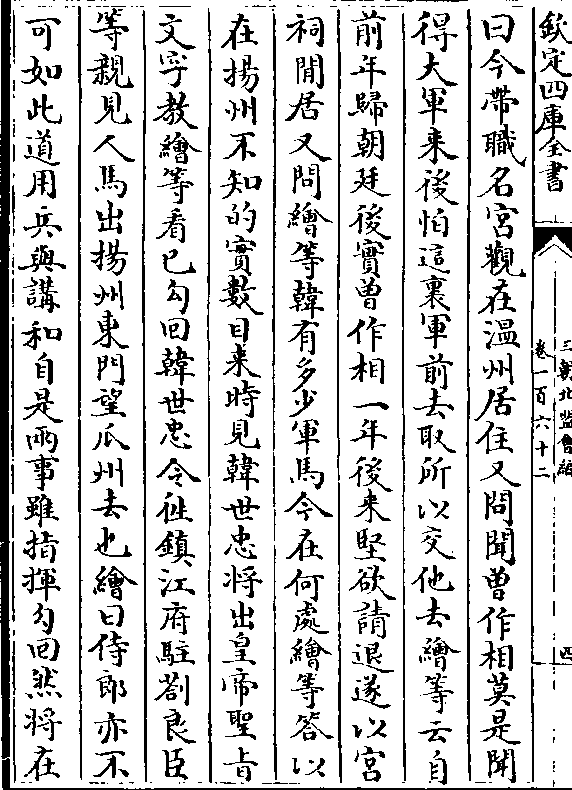 欽定四庫全書
三朝北盟會編
卷一百六十二
四
曰今帶職名宮觀在温州居住又問聞曽作相莫是聞
得大軍来後怕這裏軍前去取所以交他去繪等云自
前年歸朝廷後實曽作相一年後来堅欲請退遂以宮
祠閒居又問繪等韓有多少軍馬今在何處繪等答以
在揚州不知的實數目来時見韓世忠将出皇帝聖㫖
文字教繪等看已勾回韓世忠令徃鎮江府駐劄良臣
等親見人馬出揚州東門望瓜州去也繪曰侍郎亦不
可如此道用兵與講和自是兩事雖指揮勾回然将在